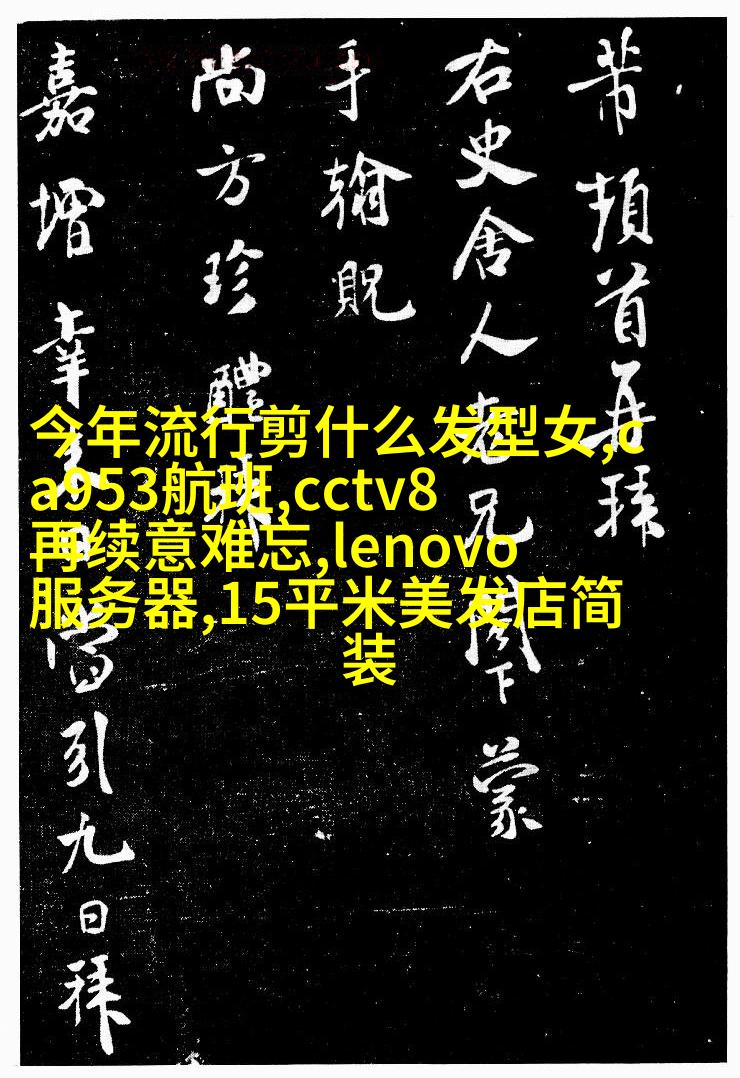 芾頓首再拜
右史舍人老兄閣下蒙
手翰貺
尚方珍醴
嘉增幸
引九日拜
今年流行剪什么发型女,c
a953航班,cctv8
再续意难忘,lenovo
服务器,15平米美发店简
装